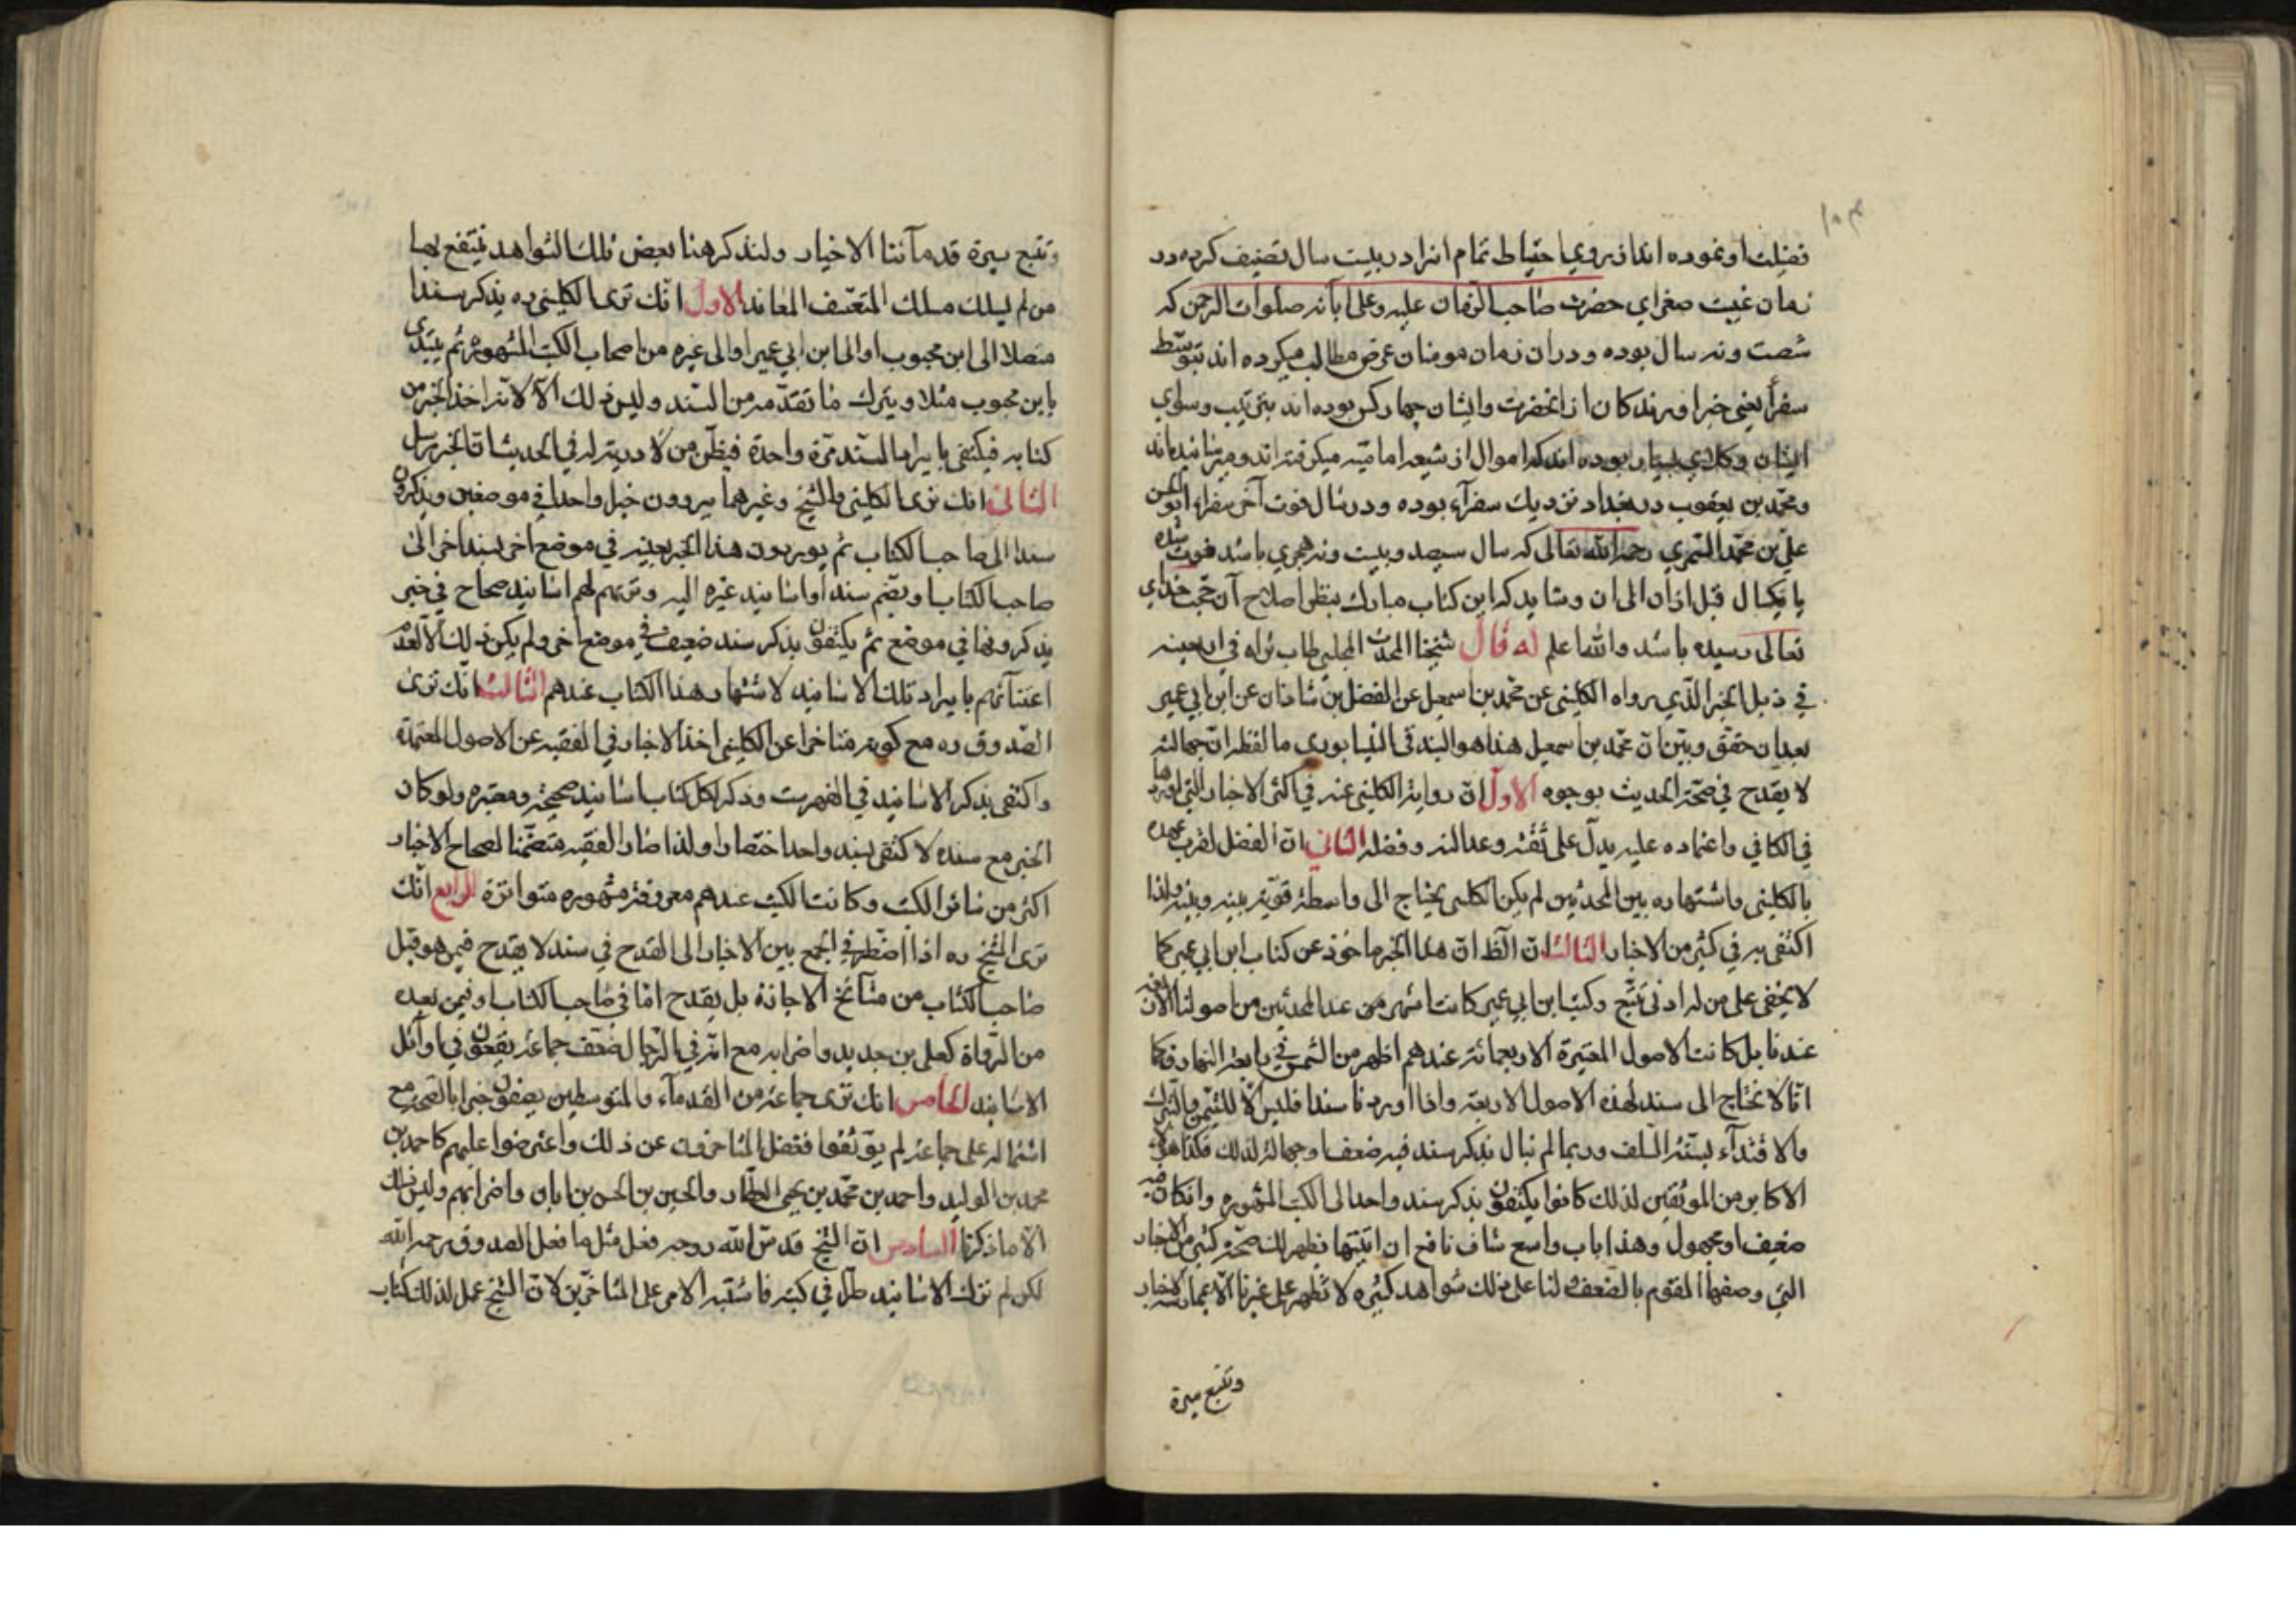 ١٠٣
فضیلت او نموده اند از روی احتیاط تمام انرا در بیست سال تصنیف کرده در
زمان غیبت صغرای حضرت صاحب الزمان علیه وعلی ابآئه صلوات الرحمن که
شصت ونه سال بوده و دران زمان مومنان عرض مطالب میکرده اند بتوسّط
سفرأ یعنی خبر اورندکان از انحضرت وایشان چهار کس بوده اند بترتیب وسوای
ایشان وکلای بسیار بوده اند که اموال از شیعه امامیّه میکرفته اند و میرسانیده اند
ومحمّد بن یعقوب در بغداد نزدیك سفرآء بوده ودر سال فوت آخر سفراء ابو الحسن
علیّ بن محمّد السّمری رحمه الله تعالی که سال سیصد وبیست ونه هجری باشد فوت شده
یا یکسال قبل ازان الی ان وشاید که این کتاب مبارك بنظر اصلاح آن حجت خدای
تعالی رسیده باشد والله اعلم له قال شیخنا المحدّث المجلسی طاب ثراه فی اربعینه
فی ذیل الخبر الّذی رواه الکلینی عن محمّد بن اسمعیل عن الفضل بن شاذان عن ابن ابی عمیر
بعد ان حقّق وبیّن انّ محمّد بن اسمعیل هذا هو البندقی النیسابوری ما لفظه انّ جهالته
لا یقدح فی صحّة الحدیث بوجوه الاوّل انّ روایة الکلینی عنه فی اکثر الاخبار التی اوردها
فی الکافی واعتماده علیه یدلّ علی ثقته وعدالته وفضله الثانی انّ الفضل لقرب عهده
بالکلینی واشتهاره بین المحدّثین لم یکن الکلینی یحتاج الی واسطة قویّة بینه وبینه ولذا
اکتفی به فی کثیر من الاخبار الثالث انّ الظّ انّ هذا الخبر ماخوذ عن کتاب ابن ابی عمیر کما
لا یخفی علی من له ادنی تتبّع وکتب ابن ابی عمیر کانت اشهر من عند المحدّثین من اصولنا الاربعة
عندنا بل کانت الاصول المعتبرة الاربعمائة عندهم اظهر من الشمس فی رابعة النهار فکما
انّا لا نحتاج الی سند لهذه الاصول الاربعة واذا اوردنا سندا فلیس الّا للتیمّن والتبرّك
والاقتدآء بسنّة السّلف وربما لم نبال بذکر سند فیه ضعف او جهالة لذلك فکذا هؤلاء
الاکابر من الموثّقین لذلك کانوا یکتفون بذکر سند واحد الی الکتب المشهوره وان کان فیه
ضعیف او مجهول وهذا باب واسع شاف نافع ان اتیتها یظهر لك صحّة کثیر من الاخبار
التی وصفها القوم بالضعف لنا علی ذلك شواهد کثیره لا تظهر علی غیرنا الّا بممارسة الاخبار
وتتبع سیرة
وتتبع سیرة قدمآئنا الاخیار ولنذکر هنا بعض تلك الشواهد ینتفع بها
من لم یسلك مسلك المتعسّف المعاند الاول انّك تری الکلینی ره یذکر سندا
متصلا الی ابن محبوب او الی ابن ابی عمیر او الی غیره من اصحاب الکتب المشهوره ثم یبتدی
بابن محبوب مثلا ویترك ما تقدّمه من السّند ولیس ذلك الّا لانّه اخذ الخبر من
کتابه فیکتفی بایراد السّند مرّة واحدة فیظنّ من لا دریة له فی الحدیث انّ الخبر مرسل
الثانی انك تری الکلینی والشیخ وغیرهما یروون خبرا واحدا فی موضعین ویذکرون
سندا الی صاحب الکتاب ثم یوردون هذا الخبر بعینه فی موضع اخر بسند اخر الی
صاحب الکتاب او یضمّ سندا او اسانید غیره الیه وتریهم لهم اسانید صحاح فی خبر
یذکرونها فی موضع ثم یکتفون بذکر سند ضعیف فی موضع اخر ولم یکن ذلك الّا لعدم
اعتنآئهم بایراد تلك الاسانید لاشتهار هذا الکتاب عندهم الثالث انّك تری
الصّدوق ره مع کونه متاخرا عن الکلینی اخذ الاخبار فی الفقیه عن الاصول المعتمدة
واکتفی بذکر الاسانید فی الفهرست وذکر لکل کتاب اسانید صحیحة ومعتبره ولو کان
الخبر مع سنده لاکتفی بسند واحد اختصارا ولذا صار الفقیه متضمّنا لصحاح الاخبار
اکثر من سائر الکتب وکانت الکتب عندهم معروفة مشهوره متواترة الرابع انّك
تری الشیخ ره اذا اضطر فی الجمع بین الاخبار الی القدح فی سند لا یقدح فیمن هو قبل
صاحب الکتاب من مشآئخ الاجازة بل یقدح امّا فی صاحب الکتاب او فیمن بعده
من الرّواة کعلی بن حدید واضرابه مع انّه فی الرّجال ضعّف جماعة یقعون فی اوآئل
الاسانید الخامس انك تری جماعة من القدمآء والمتوسطین یصفون خبرا بالصّحه مع
اشتماله علی جماعة لم یوثّقوا فغفل المتاخرون عن ذلك واعترضوا علیهم کاحمد بن
محمد بن الولید واحمد بن محمّد بن یحیی العطّار والحسین بن الحسن بن ابان واضرابهم ولیس ذلك
الّا ما ذکرنا السادس انّ الشیخ قدس الله روحه فعل مثل ما فعل الصدوق رحمه الله
لکن لم یترك الاسانید طرّا فی کتبه فاشتبه الامر علی المتاخّرین لانّ الشیخ عمل لذلك کتاب